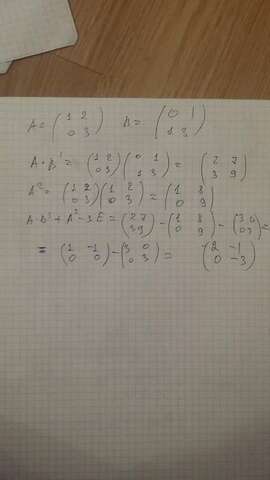 A = (1 2 0 3) B = (0 1 1 3)
A·B' = (1 2 0 3)(0 1 1 3) = (2 7 3 9)
A² = (1 2 0 3)(1 2 0 3) = (1 8 0 9)
A·B' + A² - 3E = (2 7 3 9) - (1 8 0 9) - (3 0 0 3) =
= (1 -1 0 0) - (3 0 0 3) = (2 -1 0 -3)